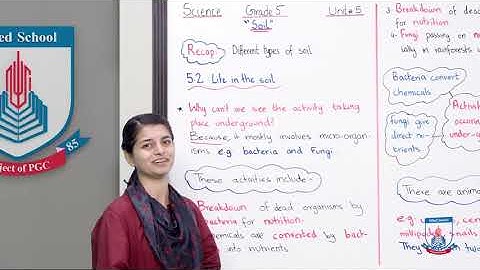 ed School
85
ject of PGC
Science Grade 5 Unit# 5
"Soil"
Recap: Different types of soil
5.2 Life in the soil
* Why can't we see the activity taking
place underground?
Because, it mostly involves micro-organ-
isms e.g bacteria and Fungi.
These activities include:-
Breakdown of dead organisms by
bacteria for nutrition.
hemicals are converted by bact-
into nutrients
3. Breakdown of dea
for nutrition
4. Fungi passing on
ially in rainforests
Bacteria convert
chemicals
fungi give
direct nu-
trients
Activiti
occurring
under-g
There are anima
e.g
cen
millipede
nails
They
two